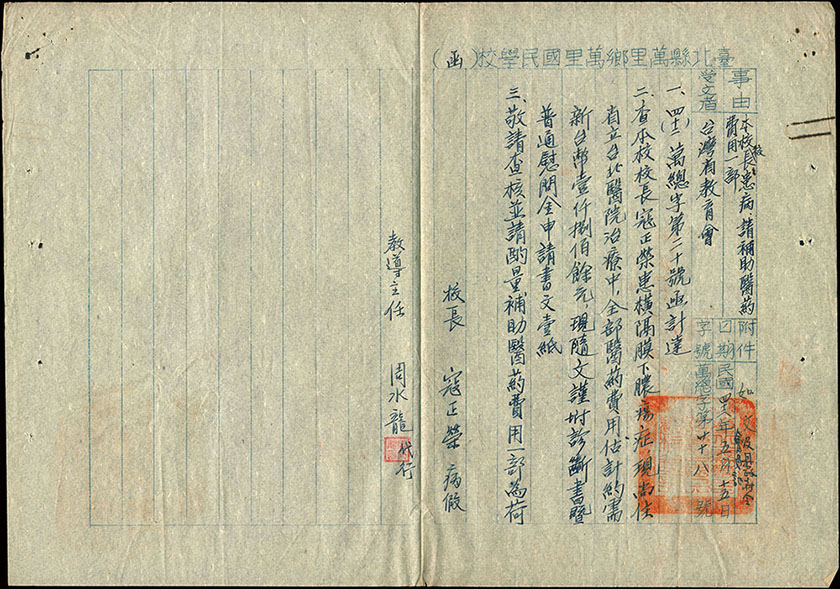 臺北縣萬里鄉萬里國民學校(函)
事由
本校校長患病、請補助醫药
費用一部
附件
如文
受文者
台灣省教育會
日期
民國四十六年五月十五日
字號
萬總字第十八號
一、四六 萬總字第二十號函計達
二、查本校校長寇正榮患橫隔膜下膿瘍症、現尚住
省立台北醫院治療中、全部醫药費用估計約需
新台幣壹仟捌佰餘元、現隨文謹附診斷書暨
普通慰問金申請書文壹紙
三、敬請查核並請酌量補助醫药費用一部為荷
校長 寇正榮 病假
教導主任 周水龍 代行